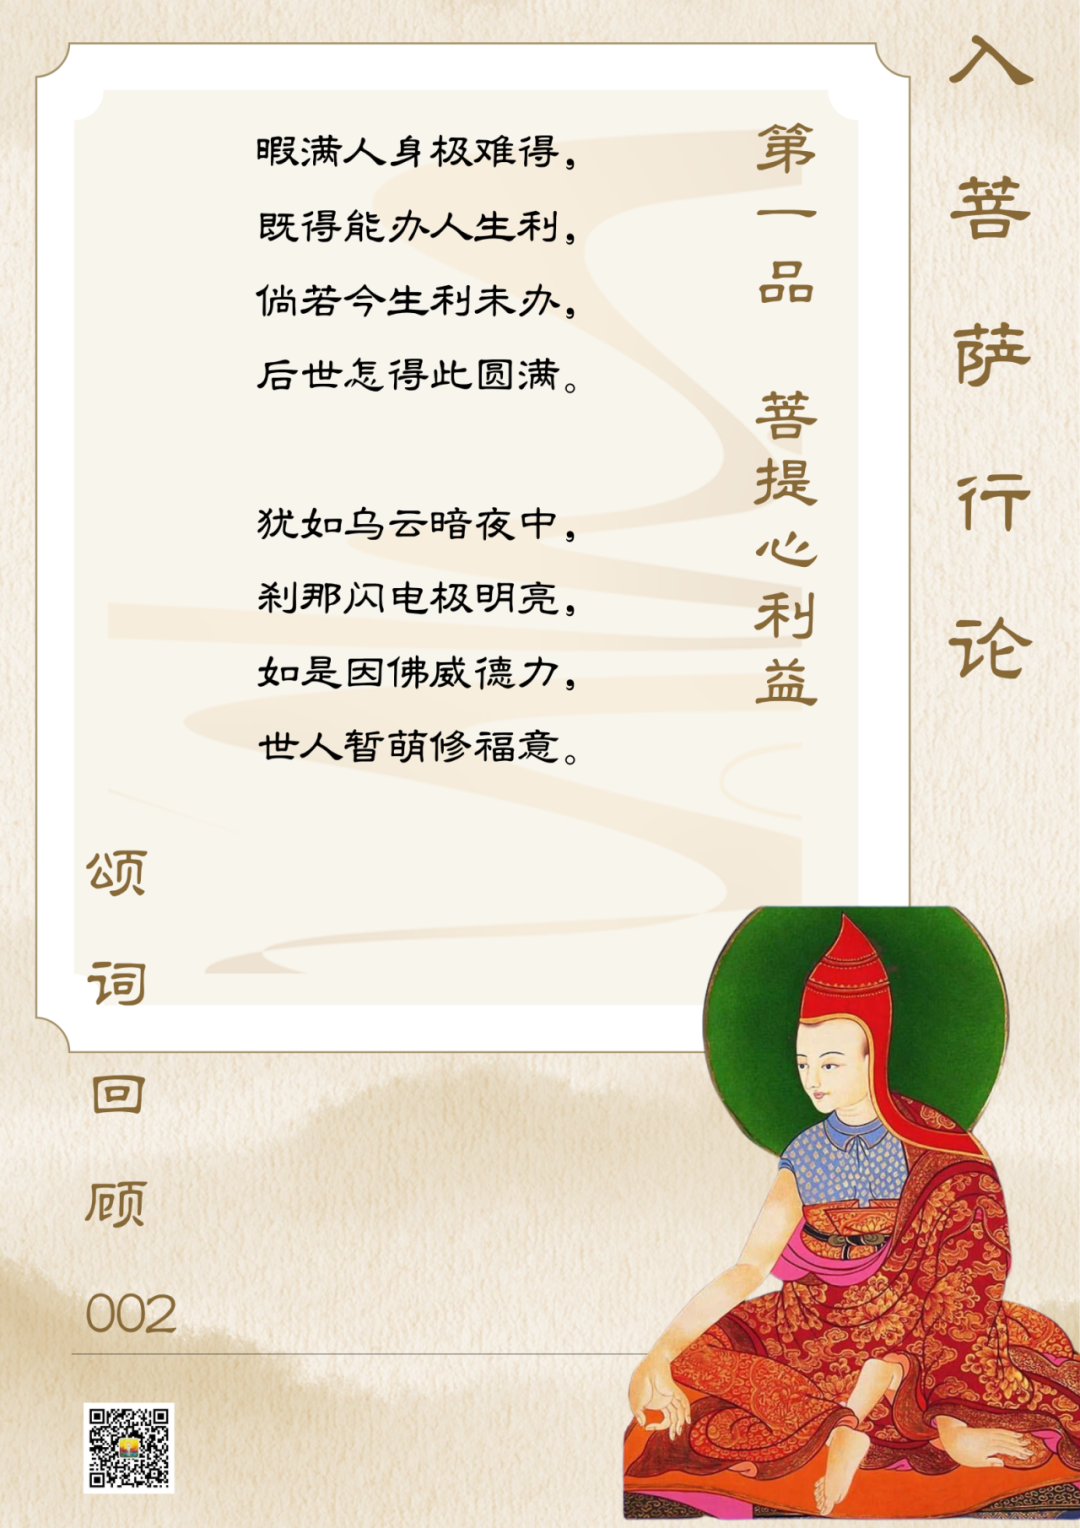 入菩萨行论
第一品 菩提心利益
暇满人身极难得，
既得能办人生利，
倘若今生利未办，
后世怎得此圆满。
犹如乌云暗夜中，
刹那闪电极明亮，
如是因佛威德力，
世人暂萌修福意。
颂词回顾
002